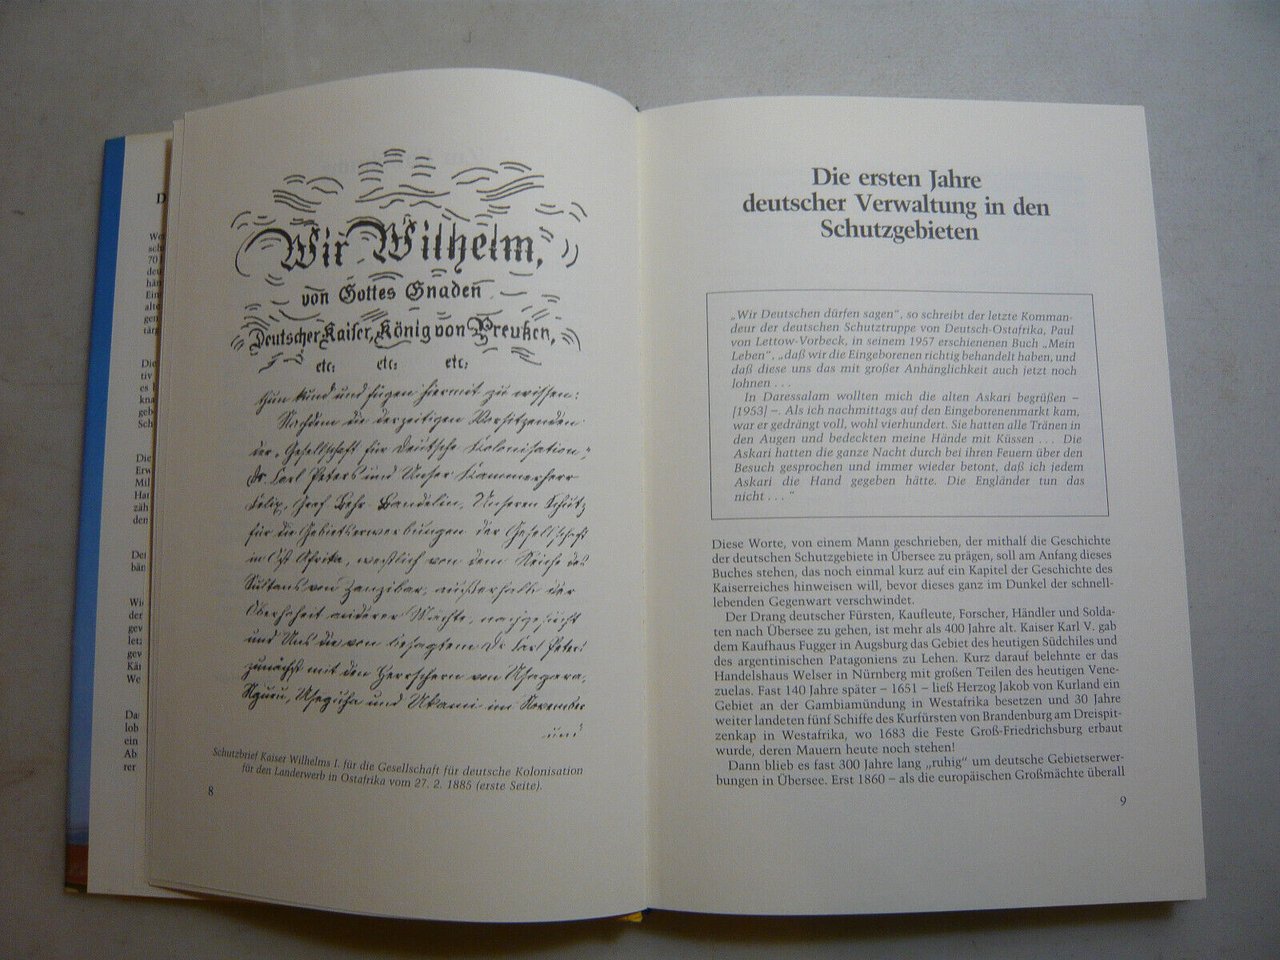 Wir Wilhelm,
von Gottes Gnaden
Deutscher Kaiser, König von Preußen,
etc. etc. etc.
thun kund und fügen hiermit zu wissen:
Nachdem die derzeitigen Vorsitzenden
der „Gesellschaft für Deutsche Kolonisation",
Dr. Carl Peters und Unser Kammerherr
Felix, Graf Behr-Bandelin, Unseren Schutz
für die Gebietserwerbungen der Gesellschaft
in Ost Afrika, westlich von dem Reiche des
Sultans von Zanzibar, außerhalb der
Oberhoheit anderer Mächte, nachgesucht
und Uns die von besagtem Dr. Carl Peters
zunächst mit den Herrschern von Usagara,
Nguru, Useguha und Ukami im November
und
Schutzbrief Kaiser Wilhelms I. für die Gesellschaft für deutsche Kolonisation
für den Landerwerb in Ostafrika vom 27. 2. 1885 (erste Seite).
8
Die ersten Jahre
deutscher Verwaltung in den
Schutzgebieten
„Wir Deutschen dürfen sagen", so schreibt der letzte Komman-
deur der deutschen Schutztruppe von Deutsch-Ostafrika, Paul
von Lettow-Vorbeck, in seinem 1957 erschienenen Buch „Mein
Leben", „daß wir die Eingeborenen richtig behandelt haben, und
daß diese uns das mit großer Anhänglichkeit auch jetzt noch
lohnen . . .
In Daressalam wollten mich die alten Askari begrüßen –
[1953] –. Als ich nachmittags auf den Eingeborenenmarkt kam,
war er gedrängt voll, wohl vierhundert. Sie hatten alle Tränen in
den Augen und bedeckten meine Hände mit Küssen . . . Die
Askari hatten die ganze Nacht durch bei ihren Feuern über den
Besuch gesprochen und immer wieder betont, daß ich jedem
Askari die Hand gegeben hätte. Die Engländer tun das
nicht . . ."
Diese Worte, von einem Mann geschrieben, der mithalf die Geschichte
der deutschen Schutzgebiete in Übersee zu prägen, soll am Anfang dieses
Buches stehen, das noch einmal kurz auf ein Kapitel der Geschichte des
Kaiserreiches hinweisen will, bevor dieses ganz im Dunkel der schnell-
lebenden Gegenwart verschwindet.
Der Drang deutscher Fürsten, Kaufleute, Forscher, Händler und Solda-
ten nach Übersee zu gehen, ist mehr als 400 Jahre alt. Kaiser Karl V. gab
dem Kaufhaus Fugger in Augsburg das Gebiet des heutigen Südchiles und
des argentinischen Patagoniens zu Lehen. Kurz darauf belehnte er das
Handelshaus Welser in Nürnberg mit großen Teilen des heutigen Vene-
zuelas. Fast 140 Jahre später – 1651 – ließ Herzog Jakob von Kurland ein
Gebiet an der Gambiamündung in Westafrika besetzen und 30 Jahre
weiter landeten fünf Schiffe des Kurfürsten von Brandenburg am Dreispit-
zenkap in Westafrika, wo 1683 die Feste Groß-Friedrichsburg erbaut
wurde, deren Mauern heute noch stehen!
Dann blieb es fast 300 Jahre lang „ruhig" um deutsche Gebietserwer-
bungen in Übersee. Erst 1860 – als die europäischen Großmächte überall
9